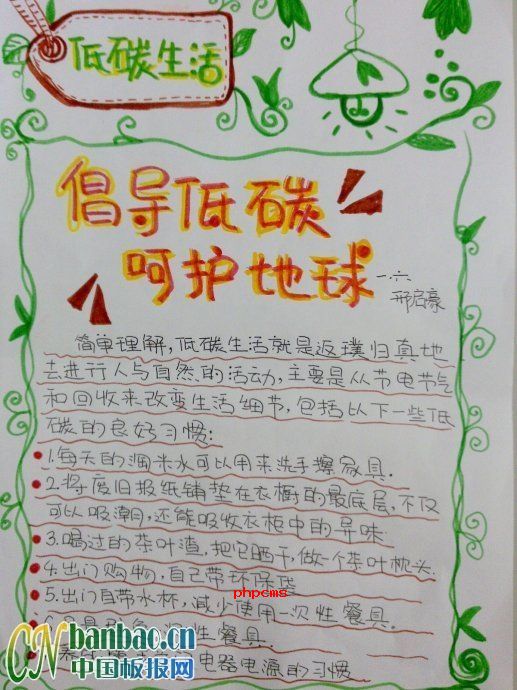 低碳生活
倡导低碳
呵护地球
一.六
邢启豪
简单理解,低碳生活就是返璞归真地
去进行人与自然的活动,主要是从节电节气
和回收来改变生活细节,包括以下一些低
碳的良好习惯:
1.每天的淘米水可以用来洗手擦家具.
2.将废旧报纸铺垫在衣橱的最底层,不仅
可以吸潮,还能吸收衣柜中的异味
3.喝过的茶叶渣,把它晒干,做一个茶叶枕头.
4.出门购物,自己带环保袋
phpcms
5.出门自带水杯,减少使用一次性餐具.
性餐具.
电器电源的习惯
CN banbao.cn
中国板报网